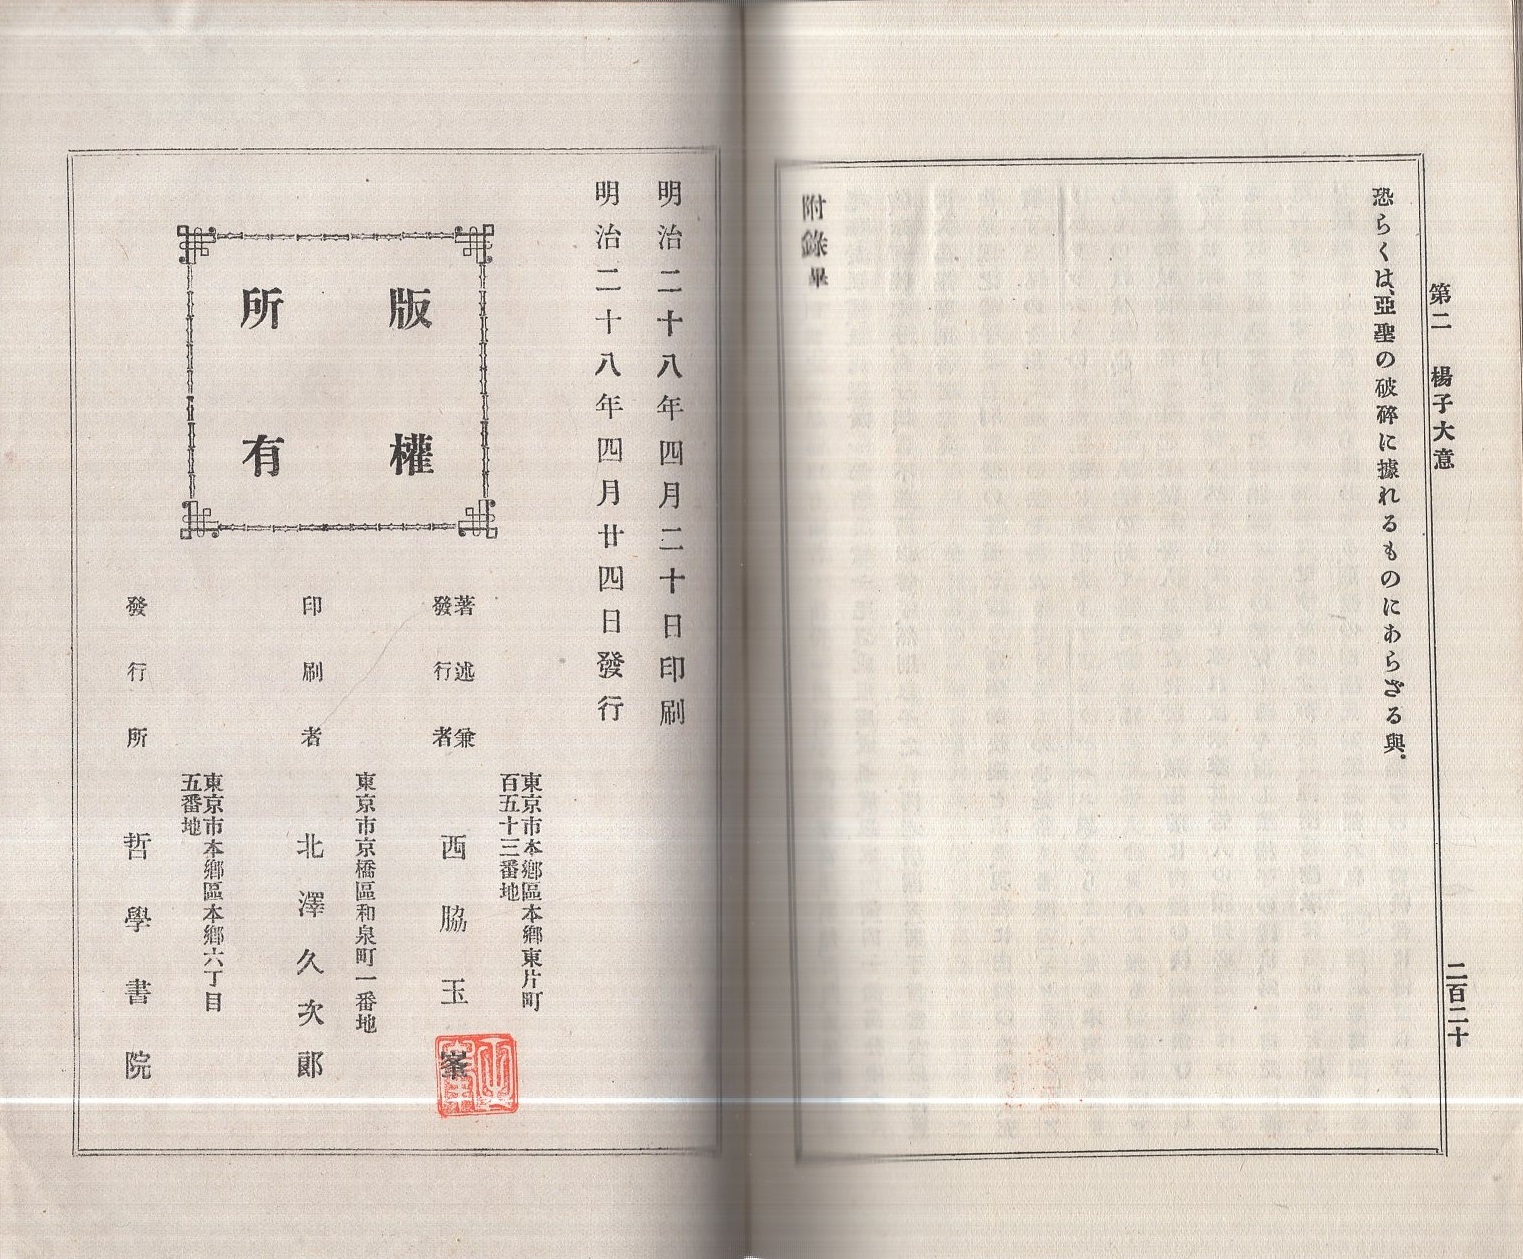 第二 楊子大意
二百二十
恐らくは、亞聖の破碎に據れるものにあらざる與。
附錄畢
明治二十八年四月二十日印刷
明治二十八年四月廿四日發行
版權
所有
東京市本鄉區本鄉東片町
百五十三番地
著述兼
發行者
西脇玉峯
東京市京橋區和泉町一番地
印刷者
北澤久次郎
東京市本鄉區本鄉六丁目
五番地
發行所
哲學書院